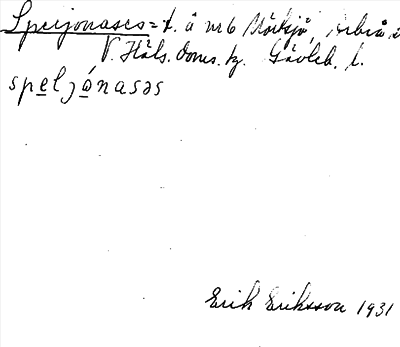 Speljonases = t. å nr 6 Mörtsjö, Arbrå s
V. Häls. doms. tg. Gävleb. l.
spelj̣ónasəs
Erik Eriksson 1931